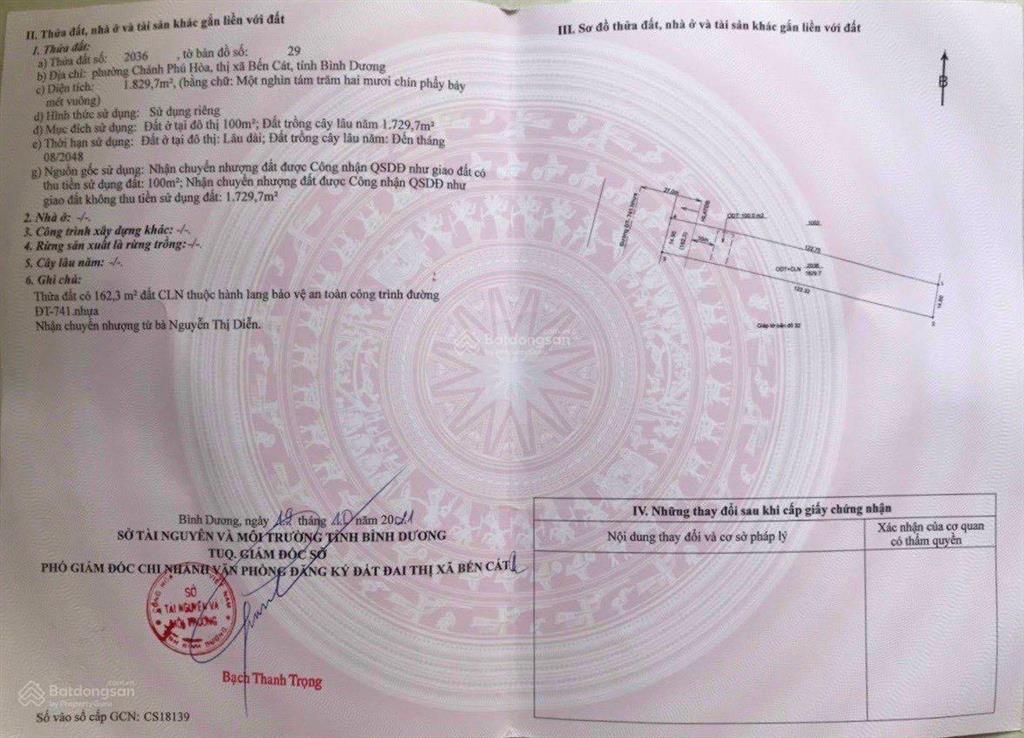 II. Thửa đất, nhà ở và tài sản khác gắn liền với đất
1. Thửa đất:
a) Thửa đất số: 2036 , tờ bản đồ số: 29
b) Địa chỉ: phường Chánh Phú Hòa, thị xã Bến Cát, tỉnh Bình Dương
c) Diện tích: 1.829,7m², (bằng chữ: Một nghìn tám trăm hai mươi chín phẩy bảy
mét vuông)
d) Hình thức sử dụng: Sử dụng riêng
đ) Mục đích sử dụng: Đất ở tại đô thị 100m²; Đất trồng cây lâu năm 1.729,7m²
e) Thời hạn sử dụng: Đất ở tại đô thị: Lâu dài; Đất trồng cây lâu năm: Đến tháng
08/2048
g) Nguồn gốc sử dụng: Nhận chuyển nhượng đất được Công nhận QSDĐ như giao đất có
thu tiền sử dụng đất: 100m²; Nhận chuyển nhượng đất được Công nhận QSDĐ như
giao đất không thu tiền sử dụng đất: 1.729,7m²
2. Nhà ở: -/-.
3. Công trình xây dựng khác: -/-.
4. Rừng sản xuất là rừng trồng:-/-.
5. Cây lâu năm: -/-.
6. Ghi chú:
Thửa đất có 162,3 m² đất CLN thuộc hành lang bảo vệ an toàn công trình đường
ĐT-741.nhựa
Nhận chuyển nhượng từ bà Nguyễn Thị Diễn.
Bình Dương, ngày 12 tháng 10 năm 2021
SỞ TÀI NGUYÊN VÀ MÔI TRƯỜNG TỈNH BÌNH DƯƠNG
TUQ. GIÁM ĐỐC SỞ
PHÓ GIÁM ĐỐC CHI NHÁNH VĂN PHÒNG ĐĂNG KÝ ĐẤT ĐAI THỊ XÃ BẾN CÁT
SỞ
TÀI NGUYÊN VÀ
MÔI TRƯỜNG
Bạch Thanh Trọng
Batdongsan
by PropertyGuru
Số vào sổ cấp GCN: CS18139
III. Sơ đồ thửa đất, nhà ở và tài sản khác gắn liền với đất
B
27.0m
ODT: 100.0 m2
14.90
(162.3)
122.75
ODT+CLN 2036
1829.7
122.32
14.80
Giáp tờ bản đồ 32
Batdongsan
by PropertyGuru
IV. Những thay đổi sau khi cấp giấy chứng nhận
Nội dung thay đổi và cơ sở pháp lý
Xác nhận của cơ quan
có thẩm quyền